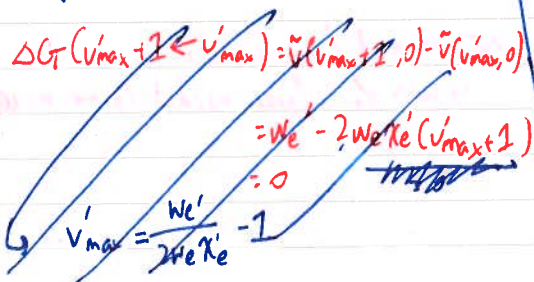 ΔG(v'max+1 ← v'max) = ṽ(v'max+1, 0) - ṽ(v'max, 0)
= we' - 2we'xe'(v'max+1)
= 0
v'max = we'/2we'xe' - 1